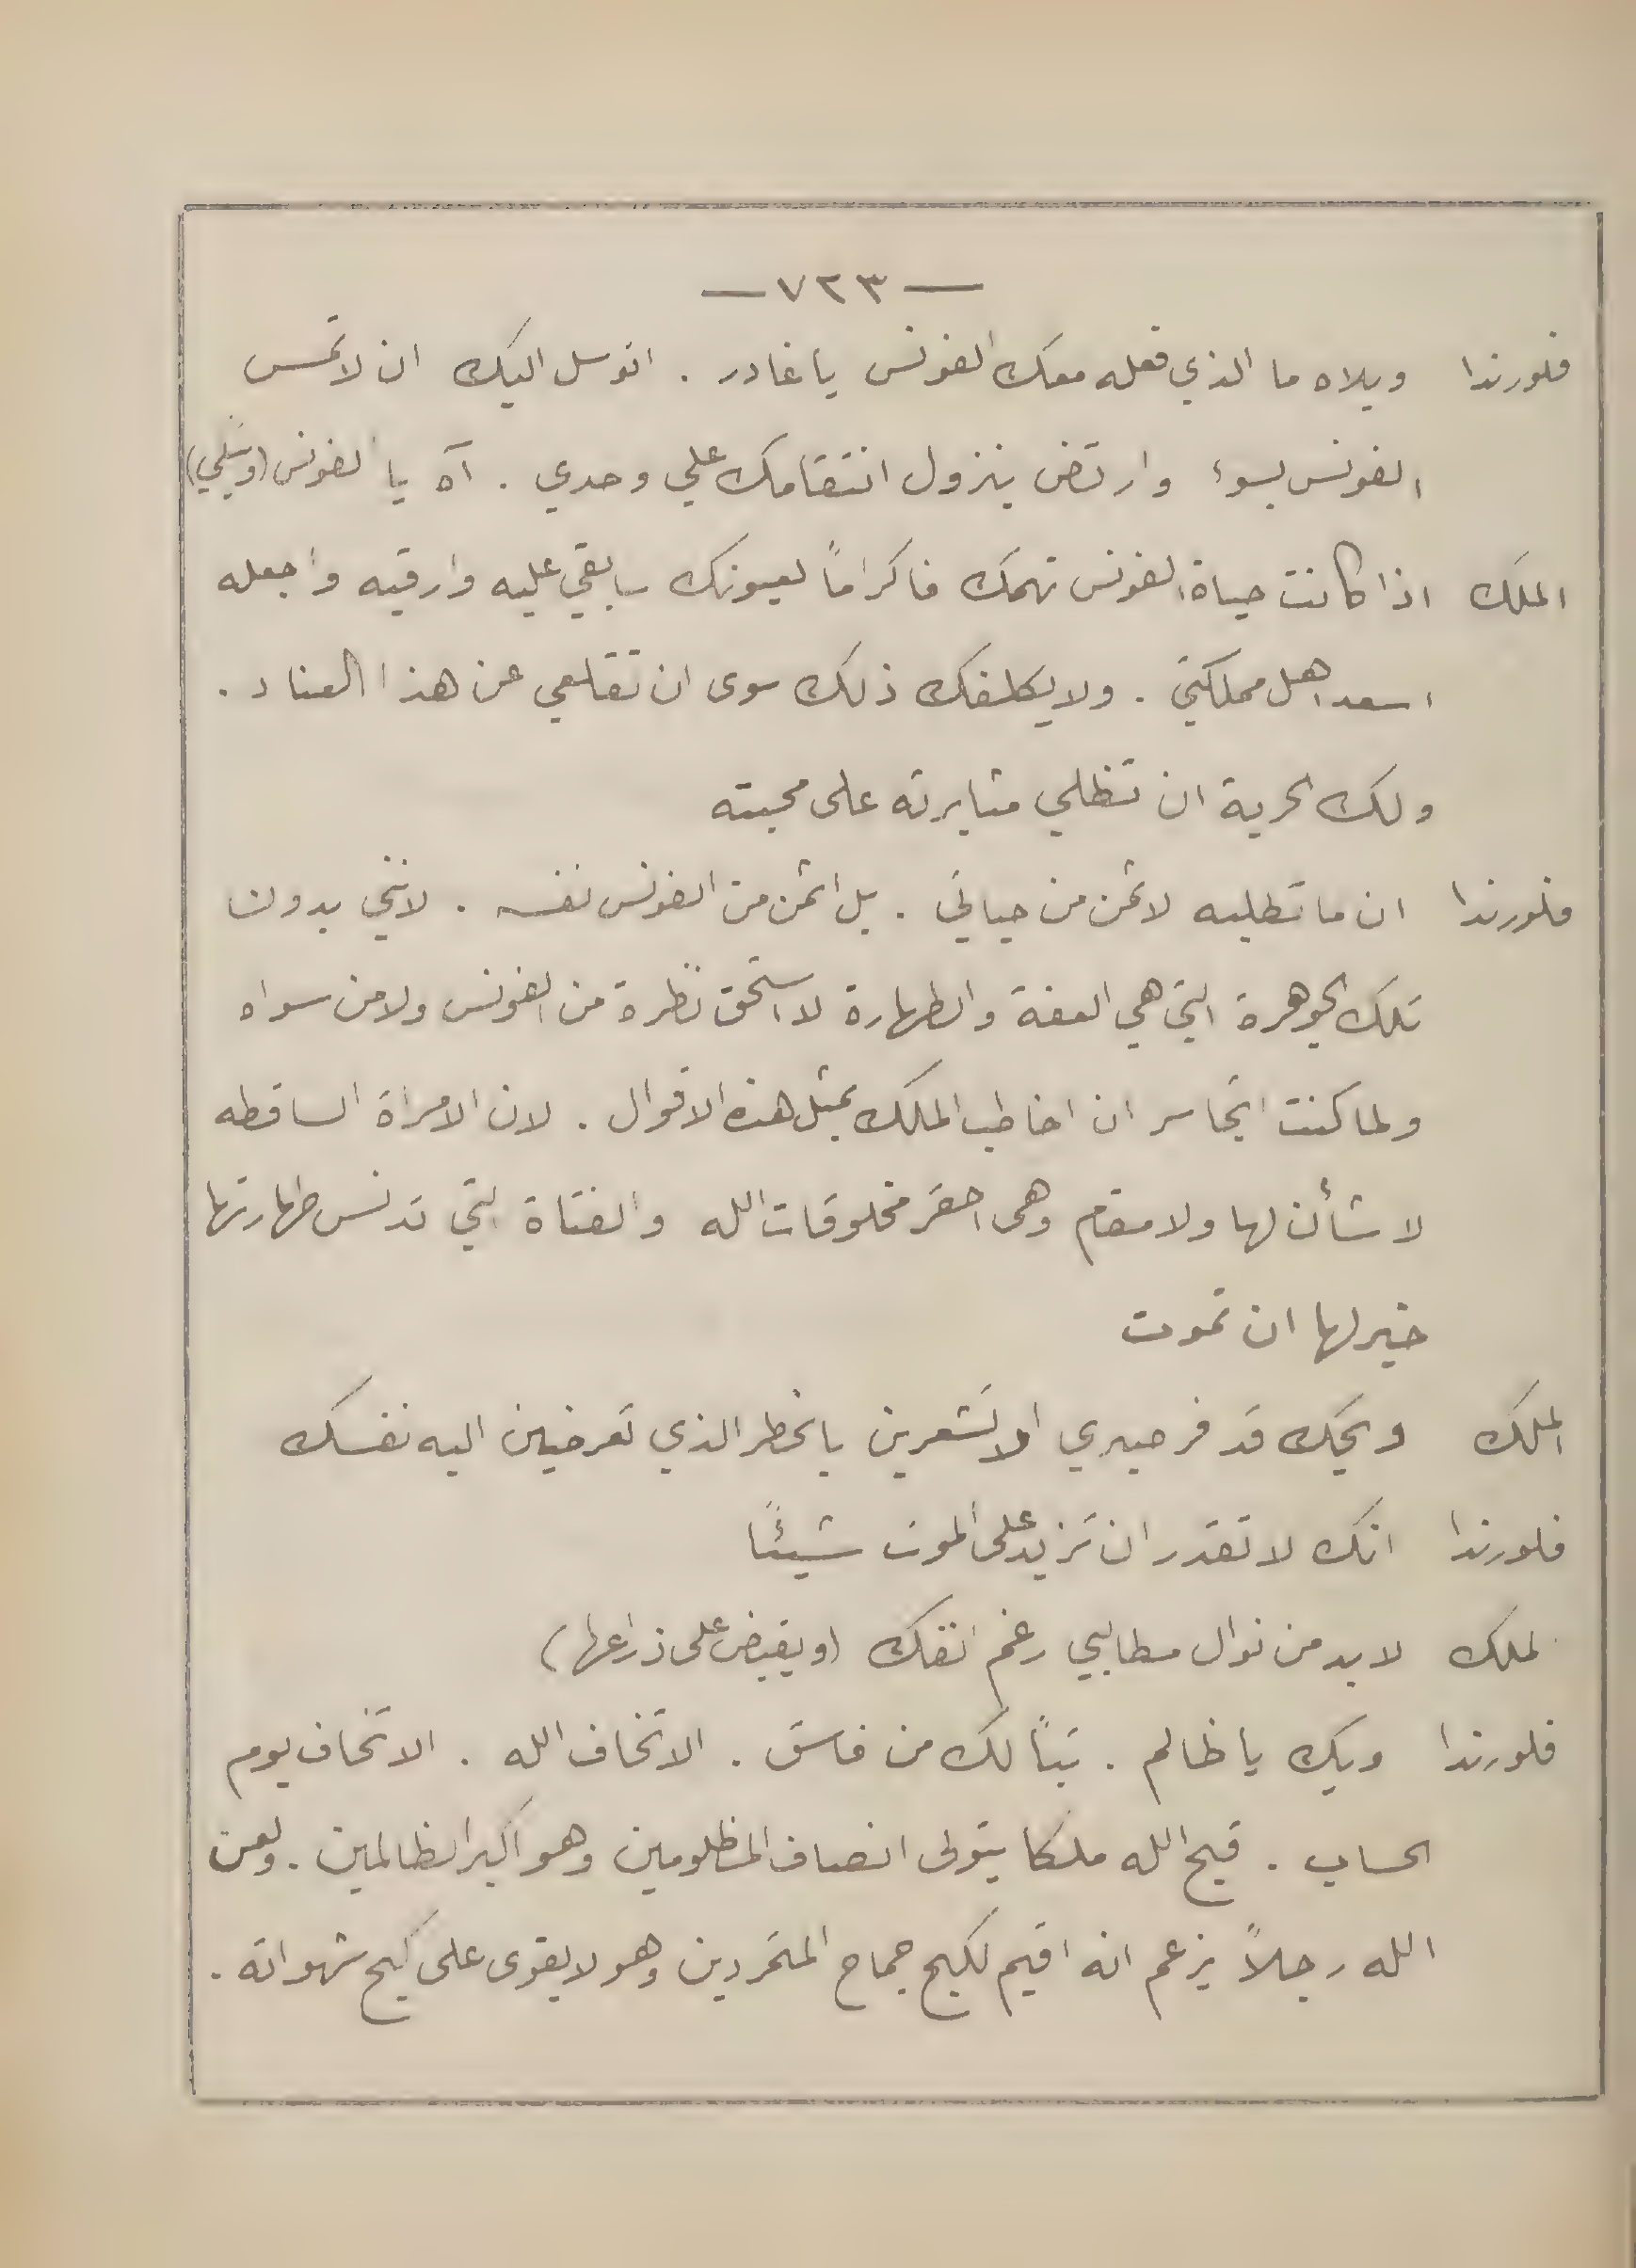 — ٧٢٣ —
فلورندا ويلاه ما الذي فعله معك الفونس يا غادر . اتوسل اليك ان لا تمس
الفونس بسوء وارتض بنزول انتقامك علي وحدي . آه يا الفونس (وتبكي)
الملك اذا كانت حياة الفونس تهمك فاكراماً لعيونك سابقي عليه وارقيه واجعله
اسعد اهل مملكتي . ولا يكلفك ذلك سوى ان تقلعي عن هذا العناد .
ولك الحرية ان تظلي مثابرته على محبته
فلورندا ان ما تطلبه لاثمن من حياتي . بل اثمن من الفونس نفسه . لانني بدون
تلك الجوهرة التي هي العفة والطهارة لا استحق نظرة من الفونس ولا من سواه
ولما كنت اتجاسر ان اخاطب الملك بمثل هذه الاقوال . لان الامراة الساقطه
لا شأن لها ولا مقام وهى احقر مخلوقات الله والفتاة التي تدنس طهارتها
خير لها ان تموت
الملك ويحك قد فرصبري اولا تشعرين بالخطر الذي تعرضين اليه نفسك
فلورندا انك لا تقدر ان تزيد على الموت شيئًا
لملك لا بد من نوال مطالبي رغم انفك (ويقبض على ذراعها)
فلورندا ويك يا ظالم . تباً لك من فاسق . الا تخاف الله . الا تخاف يوم
الحساب . قبح الله ملكا يتولى انصاف المظلومين وهو اكبر الظالمين . ولعن
الله رجلاً يزعم انه اقيم لكبح جماح المتمردين وهو لا يقوى على كبح شهواته .